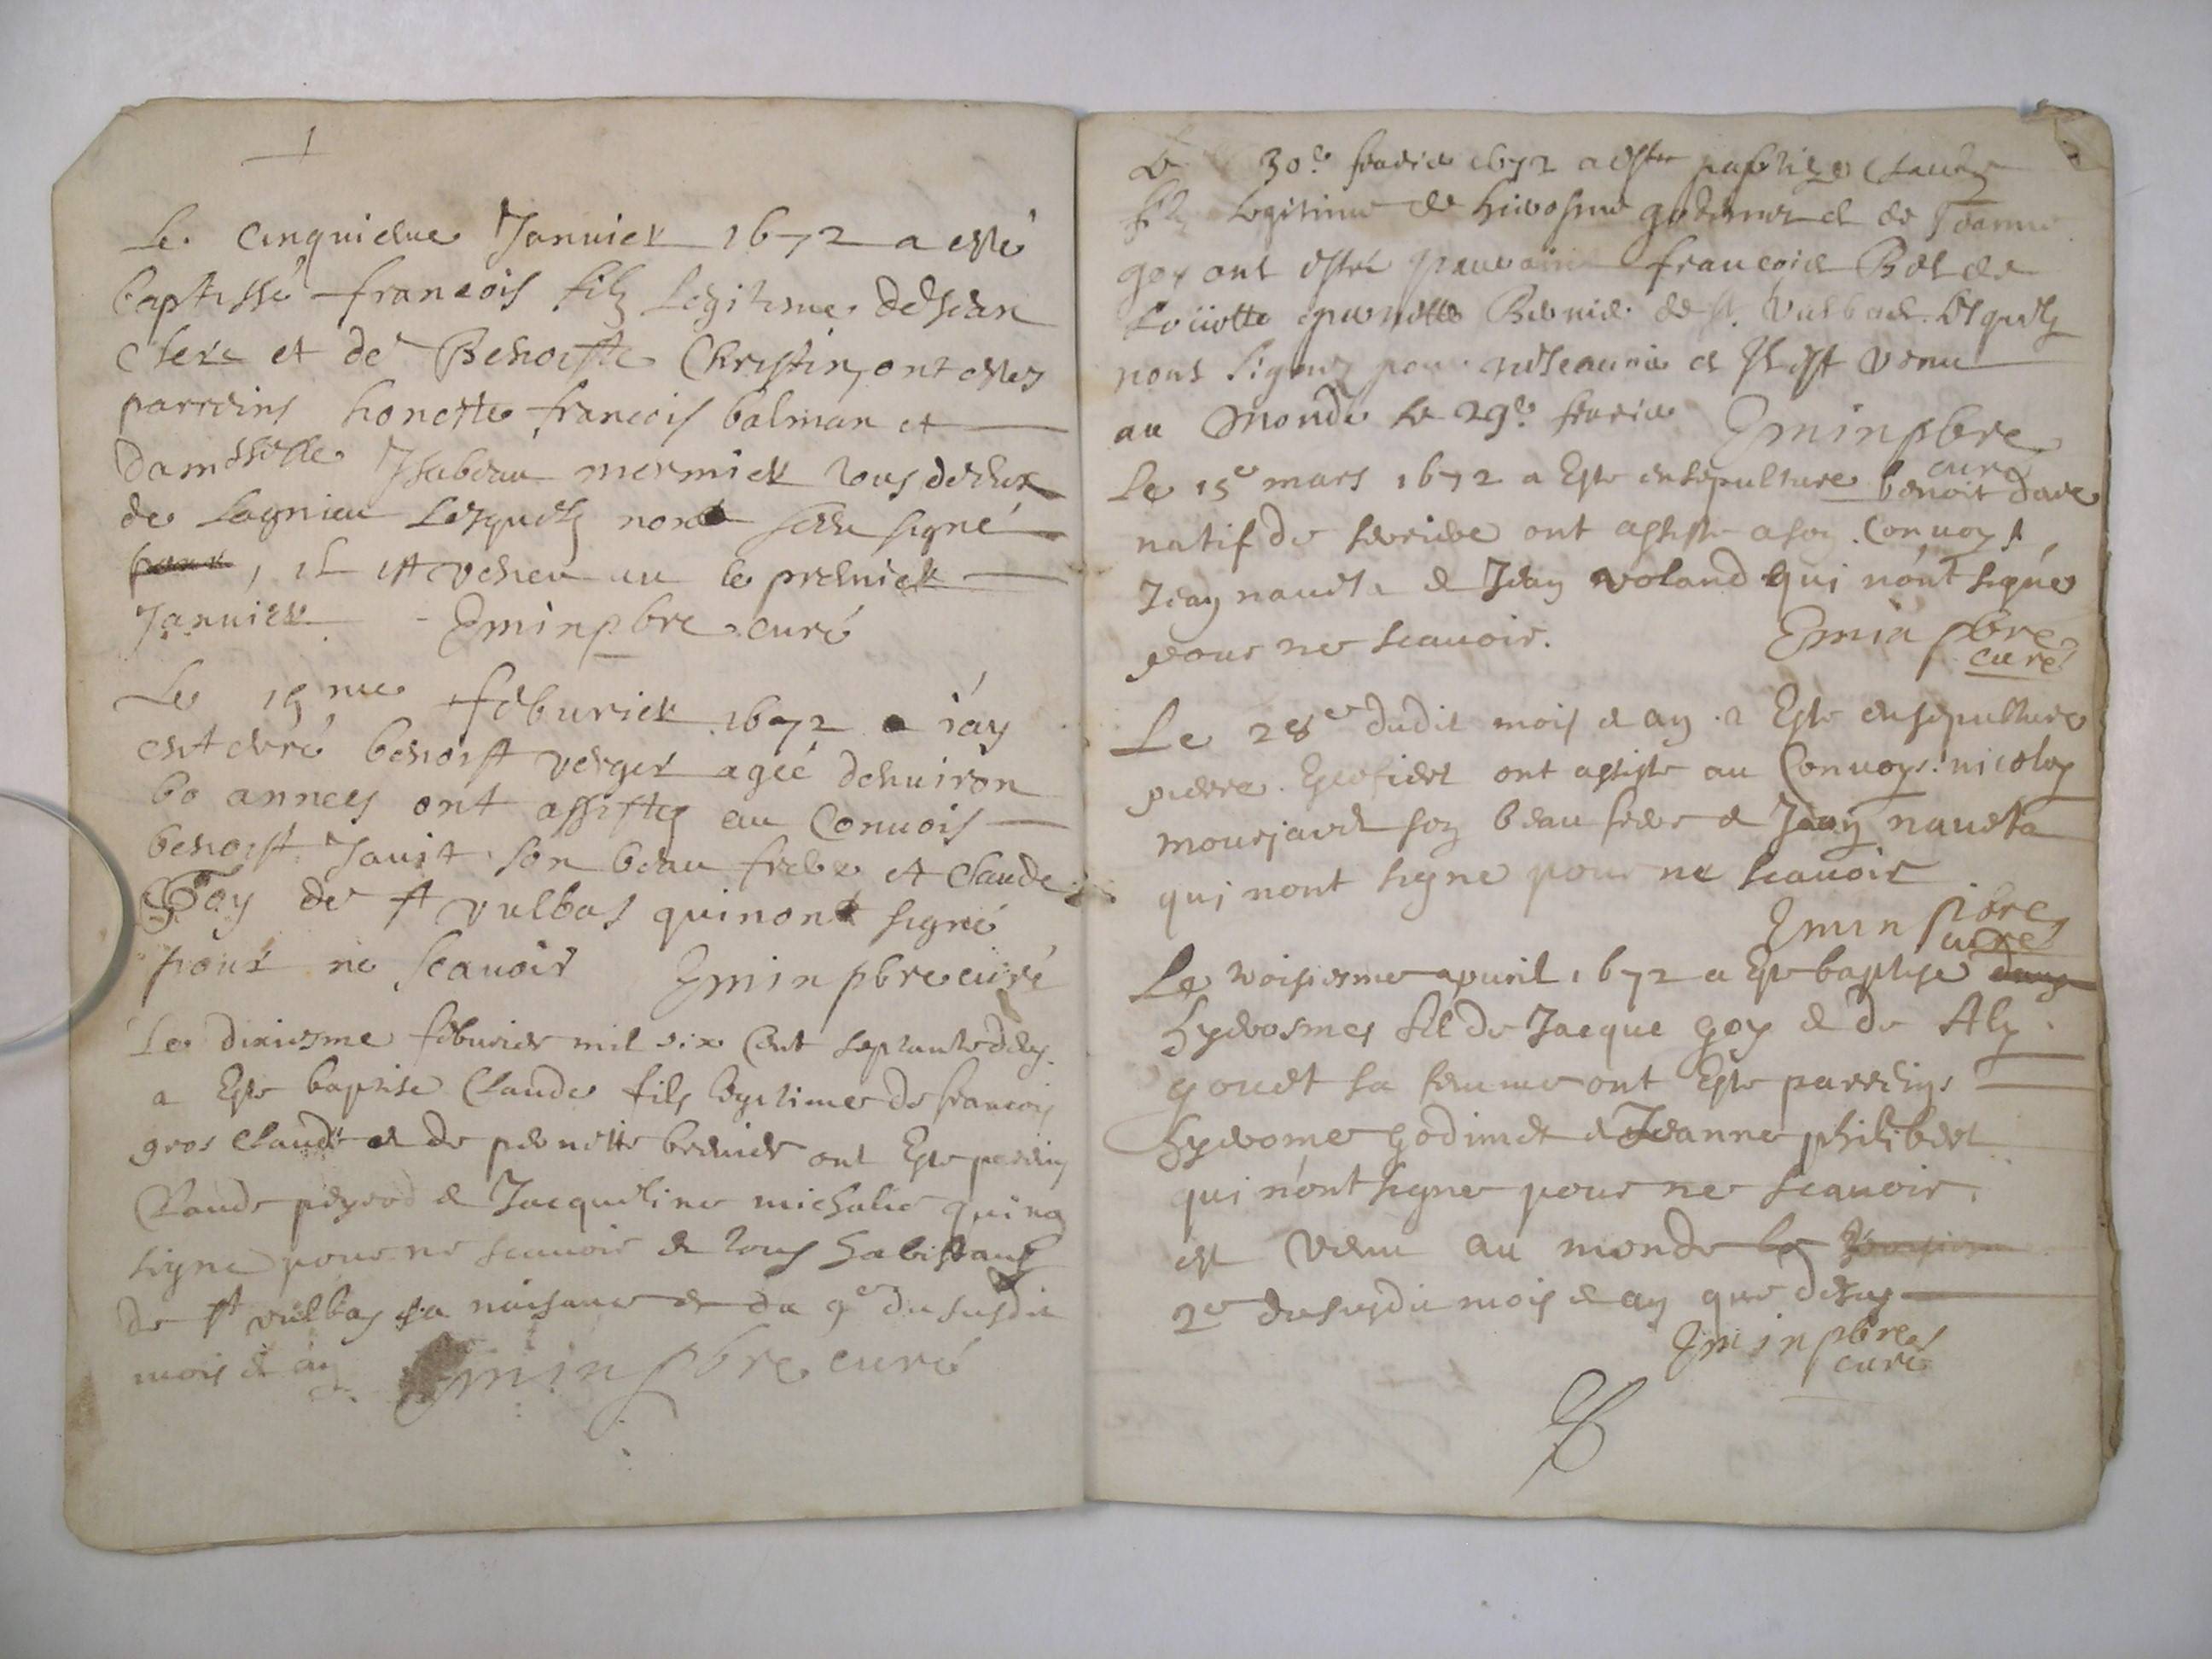 1
Le cinquieme Januier 1672 a esté
baptissé francois filz Legitime de Jean
Clerc et de Benoiste Christin, ont estes
parreins honeste francois balman et
damoiselle Isabeau mermier tous deux
de Lagnieu Lesquelz nont seeu signé
pour, il est veneu au le premier
Januier Emin pbre curé
Le 15me feburier 1672 a iay
enterré benoist verger ageé denuiron
60 annees ont assistez au Conuois
benoist Jauit son beau frere et Claude
Goy de st vulbas qui nont signé
pour ne scauoir Emin pbre curé
Le dixiesme feburier mil six Cent septante deux
a Este baptise Claude fils legitime de francois
gros Claude et de pernette bernier ont Este parrein
Claude peysod et Jacqueline michalie qui nont
signe pour ne scauoir et tous habistans
de st vulbas sa naisance et du 9e du susdit
mois et an Emin pbre curé
Le 30e feurier 1672 a estre paptize Claude
filz Legitime de hierosme godimet et de Jeanne
goy ont esté parrain francois Bel de
Loüiette pernette Bernie de st Vulbas Lesquelz
nont signez pour ne scauoir et Il est venu
au Monde le 29e feurier Emin pbre
curé
Le 15e mars 1672 a Este ensepulture benoit
natif de serriere ont assiste a son Conuoy
Jean naueta et Jean voland qui nont signé
pour ne scauoir. Emin pbre
curé
Le 28e dudit mois et an a Este ensepulture
pierre ont assiste au Conuoy nicolas
mourjaret son beau frere et Jean naueta
qui nont signe pour ne scauoir
Emin pbre
curé
Le troisiesme apuril 1672 a Este baptise
hyerosmes fil de Jacque goy et de Aly
gouet sa femme ont Este parreins
hyerome godimet et Jeanne philibert
qui nont signe pour ne scauoir
est venu au monde le
2e du susdit mois et an que desus
Emin pbre
curé